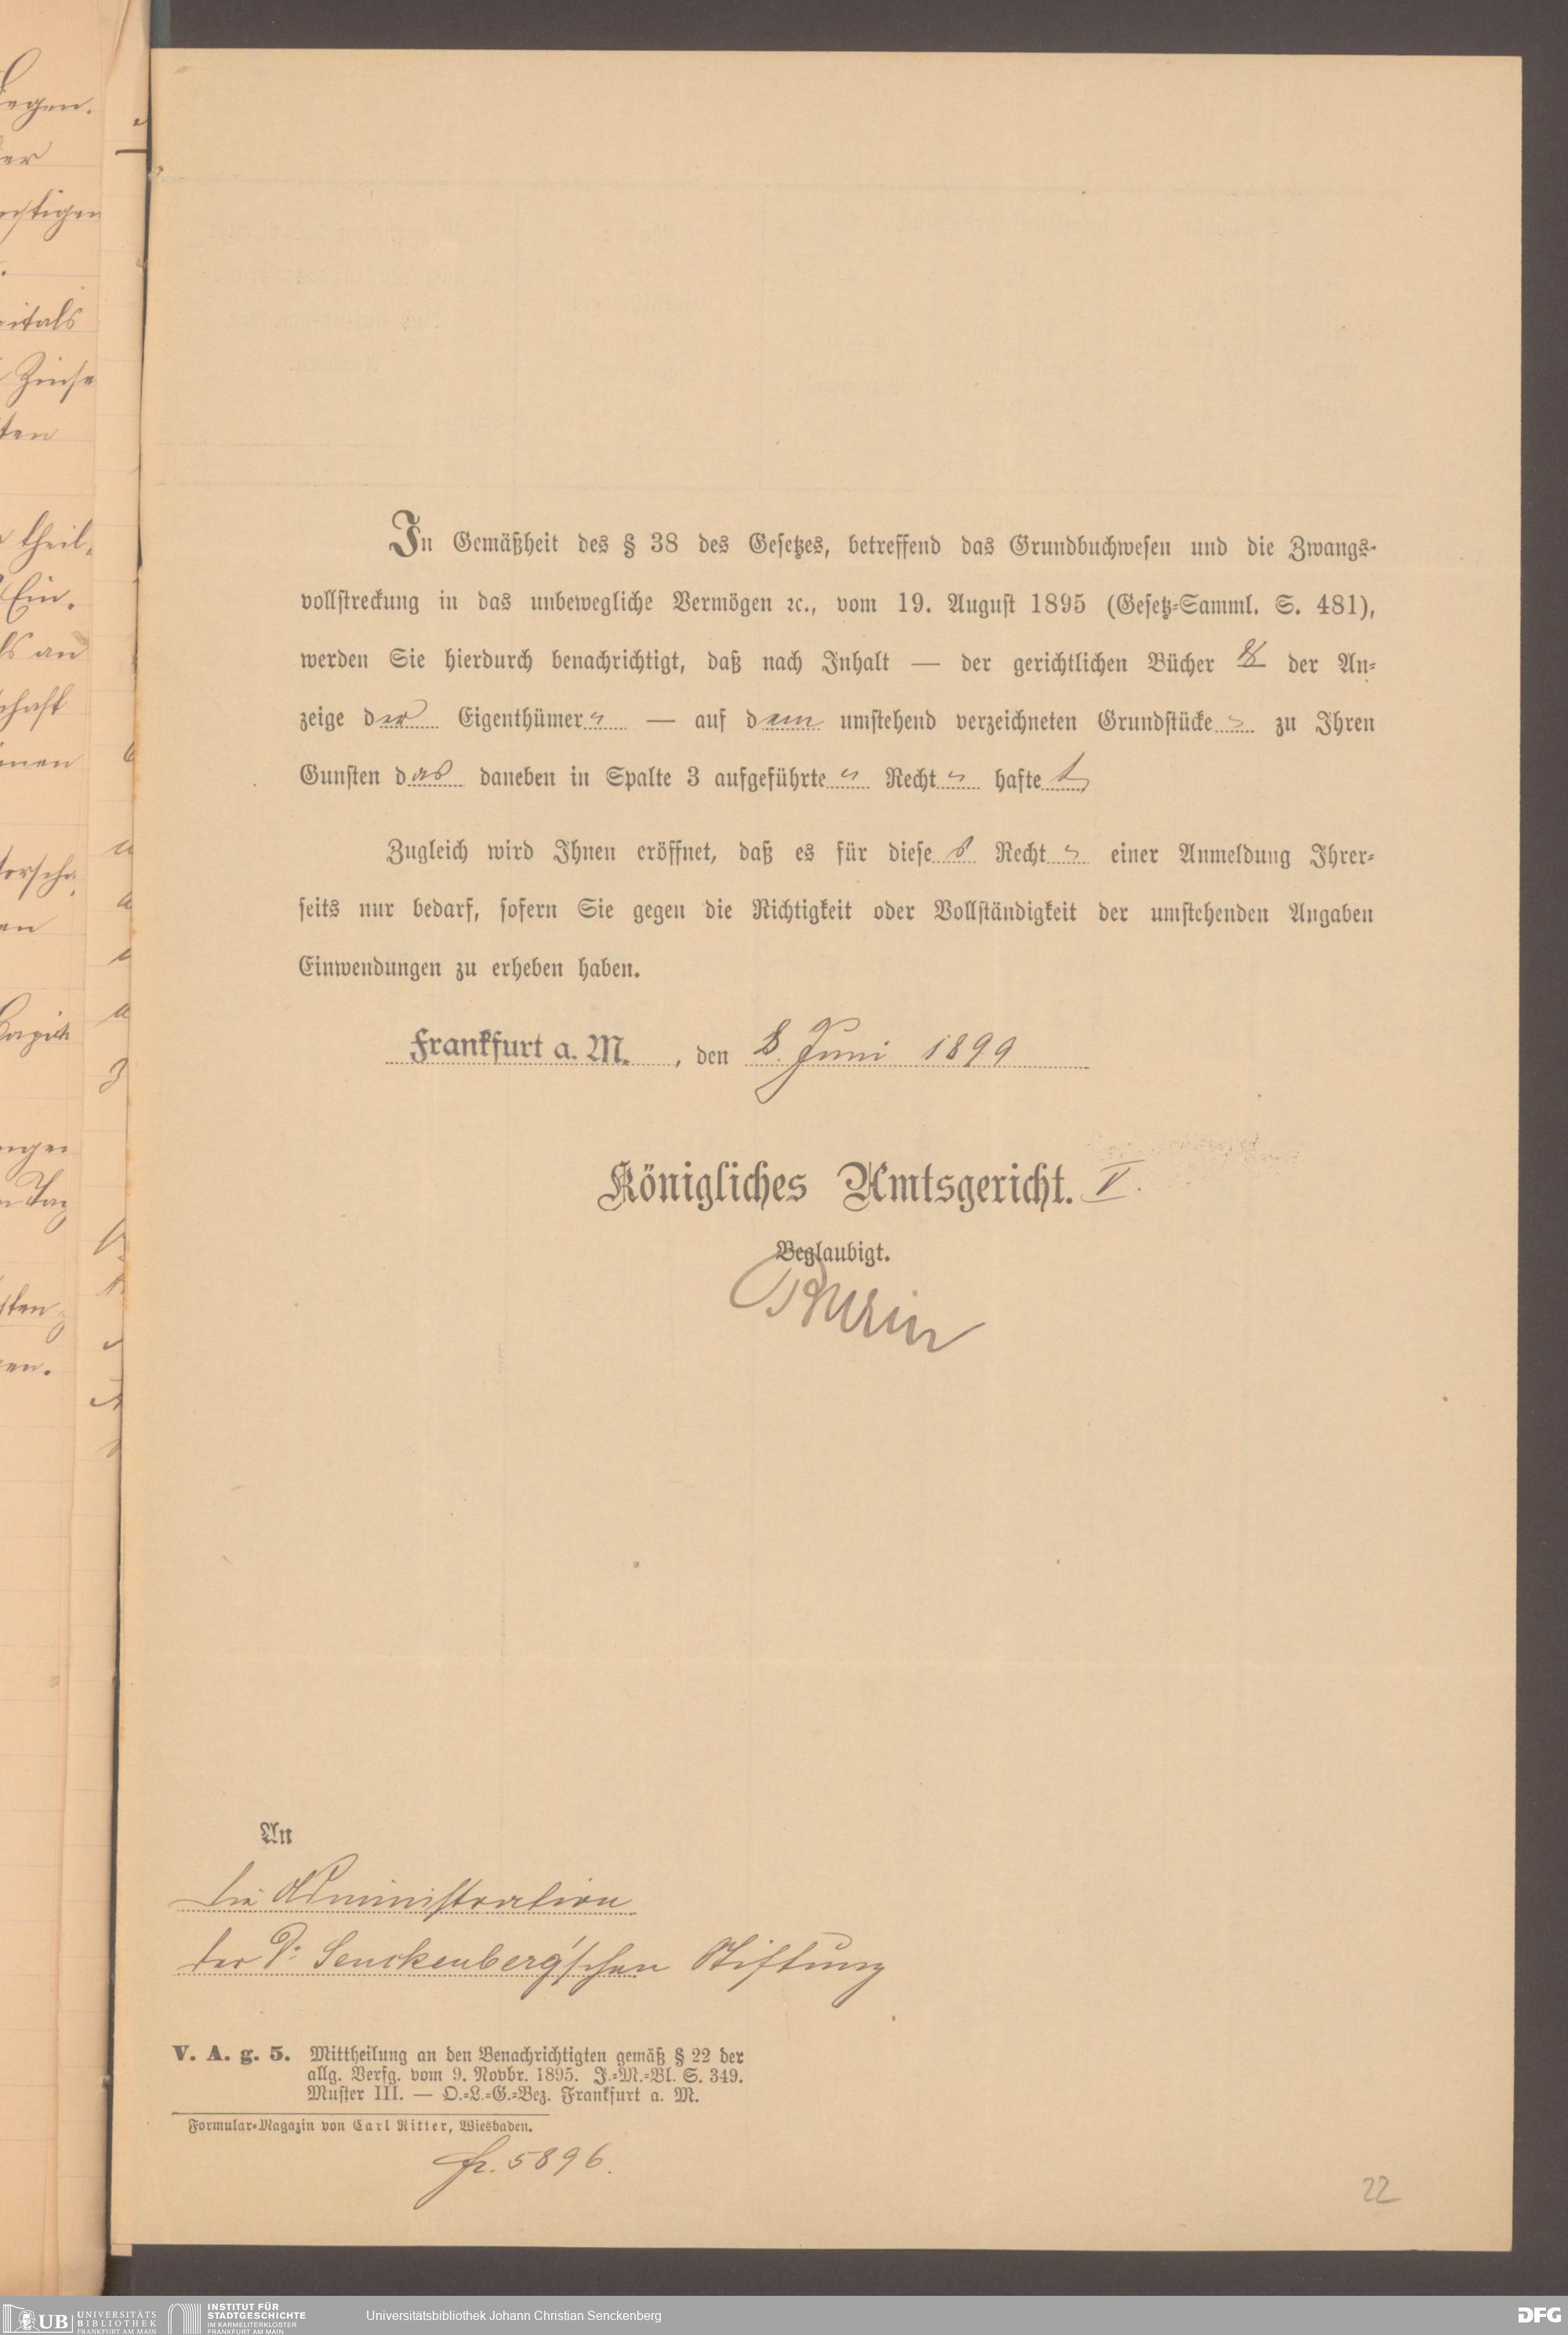 In Gemäßheit des § 38 des Gesetzes, betreffend das Grundbuchwesen und die Zwangs-
vollstreckung in das unbewegliche Vermögen ꝛc., vom 19. August 1895 (Gesetz-Samml. S. 481),
werden Sie hierdurch benachrichtigt, daß nach Inhalt — der gerichtlichen Bücher & der An-
zeige der Eigenthümer — auf dem umstehend verzeichneten Grundstücke zu Ihren
Gunsten das daneben in Spalte 3 aufgeführte Recht haftet
Zugleich wird Ihnen eröffnet, daß es für dieses Recht einer Anmeldung Ihrer-
seits nur bedarf, sofern Sie gegen die Richtigkeit oder Vollständigkeit der umstehenden Angaben
Einwendungen zu erheben haben.
Frankfurt a. M., den 8. Juni 1899
Königliches Amtsgericht. V.
Beglaubigt.
An
die Administration
der Dr. Senckenberg'schen Stiftung
V. A. g. 5. Mittheilung an den Benachrichtigten gemäß § 22 der
allg. Verfg. vom 9. Novbr. 1895. J.-M.-Bl. S. 349.
Muster III. — O.-L.-G.-Bez. Frankfurt a. M.
Formular-Magazin von Carl Ritter, Wiesbaden.
5896.
22
egen.
er
stigen
itals
Zinse
ten
theil,
Ein.
ls an
schaft
inen
en
sten
en.
UB UNIVERSITÄTS
BIBLIOTHEK
FRANKFURT AM MAIN
INSTITUT FÜR
STADTGESCHICHTE
IM KARMELITERKLOSTER
FRANKFURT AM MAIN
Universitätsbibliothek Johann Christian Senckenberg
DFG